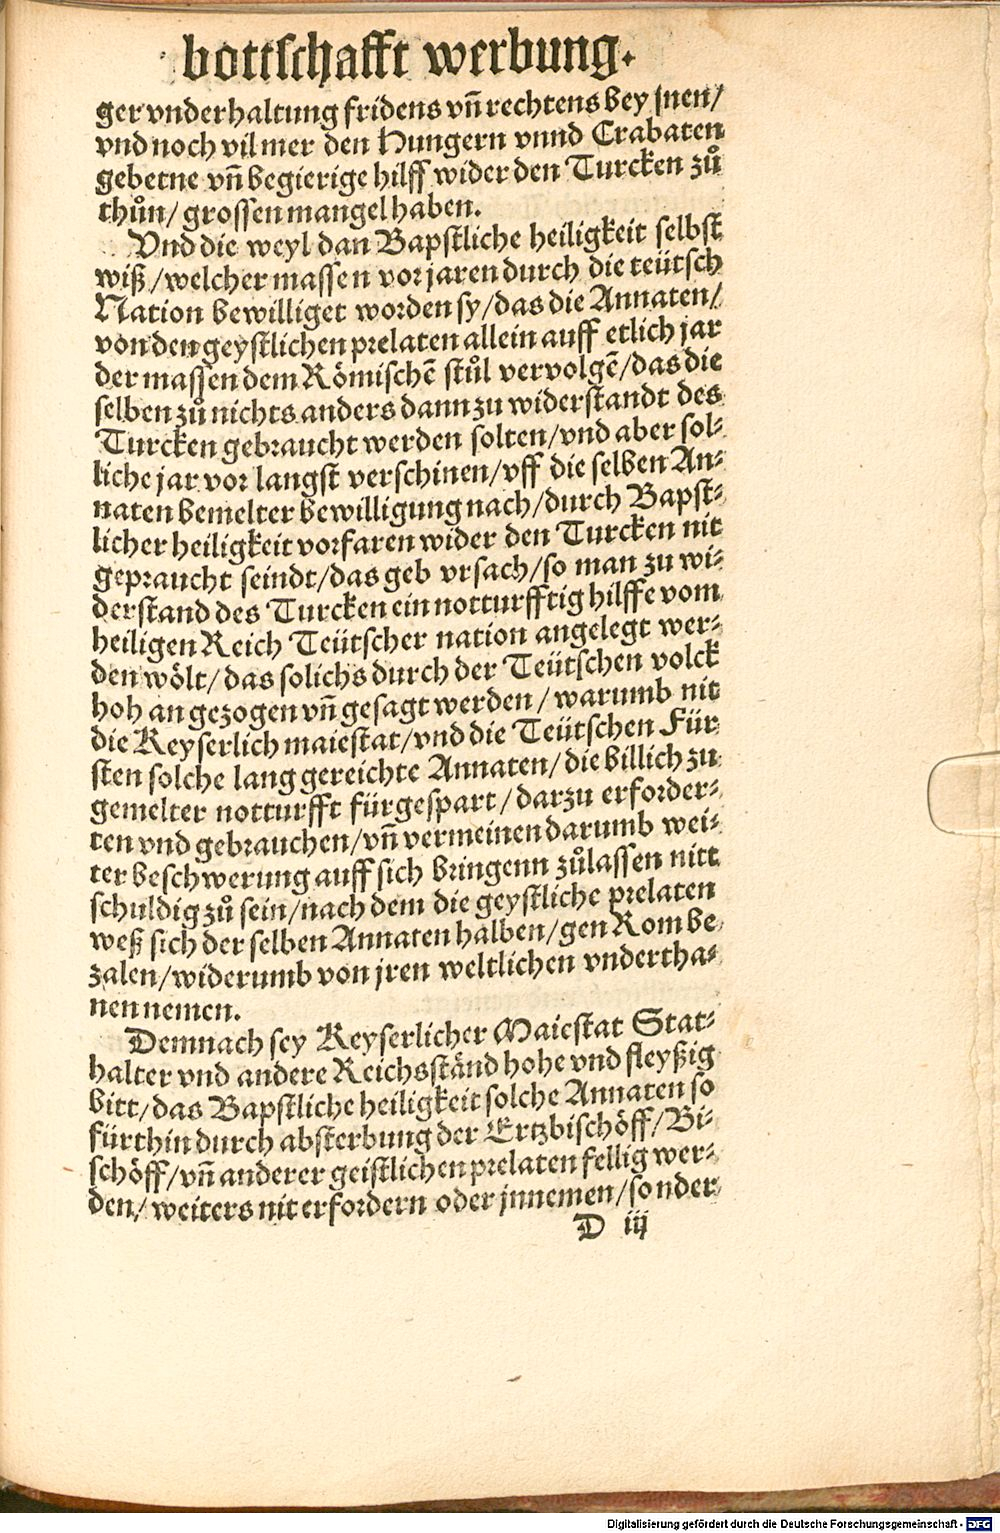 bottschafft werbung.
ger vnderhaltung fridens vñ rechtens bey jnen/
vnd noch vil mer den Hungern vnnd Crabaten
gebetne vñ begierige hilff wider den Turcken zů
thůn/ grossen mangel haben.
Vnd die weyl dan Bapstliche heiligkeit selbst
wiß/welcher massen vor jaren durch die teütsch
Nation bewilliget worden sy/das die Annaten/
von den geystlichen prelaten allein auff etlich jar
der massen dem Römischẽ stůl vervolgẽ/das die
selben zů nichts anders dann zu widerstandt des
Turcken gebraucht werden solten/vnd aber sol-
liche jar vor langst verschinen/vff die selben An-
naten bemelter bewilligung nach/durch Bapst-
licher heiligkeit vorfaren wider den Turcken nit
gepraucht seindt/das geb vrsach/so man zu wi-
derstand des Turcken ein notturfftig hilffe vom
heiligen Reich Teütscher nation angelegt wer-
den wölt/das solichs durch der Teütschen volck
hoh an gezogen vñ gesagt werden/warumb nit
die Keyserlich maiestat/vnd die Teütschen Für
sten solche lang gereichte Annaten/die billich zu
gemelter notturfft fürgespart/darzu erforder-
ten vnd gebrauchen/vñ vermeinen darumb wei-
ter beschwerung auff sich bringenn zůlassen nitt
schuldig zů sein/nach dem die geystliche prelaten
weß sich der selben Annaten halben/gen Rom be
zalen/widerumb von jren weltlichen vndertha-
nen nemen.
Demnach sey Keyserlicher Maiestat Stat-
halter vnd andere Reichsständ hohe vnd fleyßig
bitt/das Bapstliche heiligkeit solche Annaten so
fürthin durch absterbung der Ertzbischöff/Bi-
schöff/vñ anderer geistlichen prelaten fellig wer-
den/weiters nit erfordern oder jnnemen/sonder
D iij
Digitalisierung gefördert durch die Deutsche Forschungsgemeinschaft - DFG